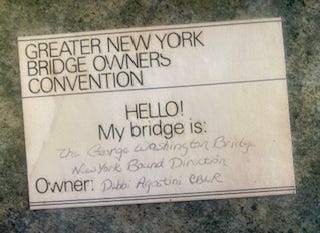 GREATER NEW YORK
BRIDGE OWNERS
CONVENTION
HELLO!
My bridge is:
The George Washington Bridge
New York Bound Direction
Owner: Debbi Agostini